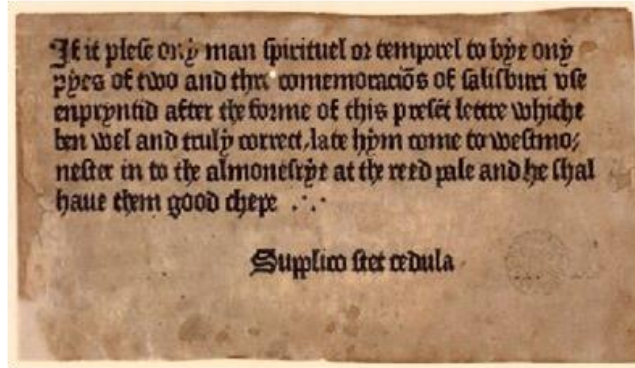 If it plese ony man spirituel or temporel to bye ony
pyes of two and thre comemoraciōs of salisburi vse
enpryntid after the forme of this presēt lettre whiche
ben wel and truly correct, late hym come to westmo/
nester in to the almonesrye at the reed pale and he shal
haue them good chepe .·.
Supplico stet cedula